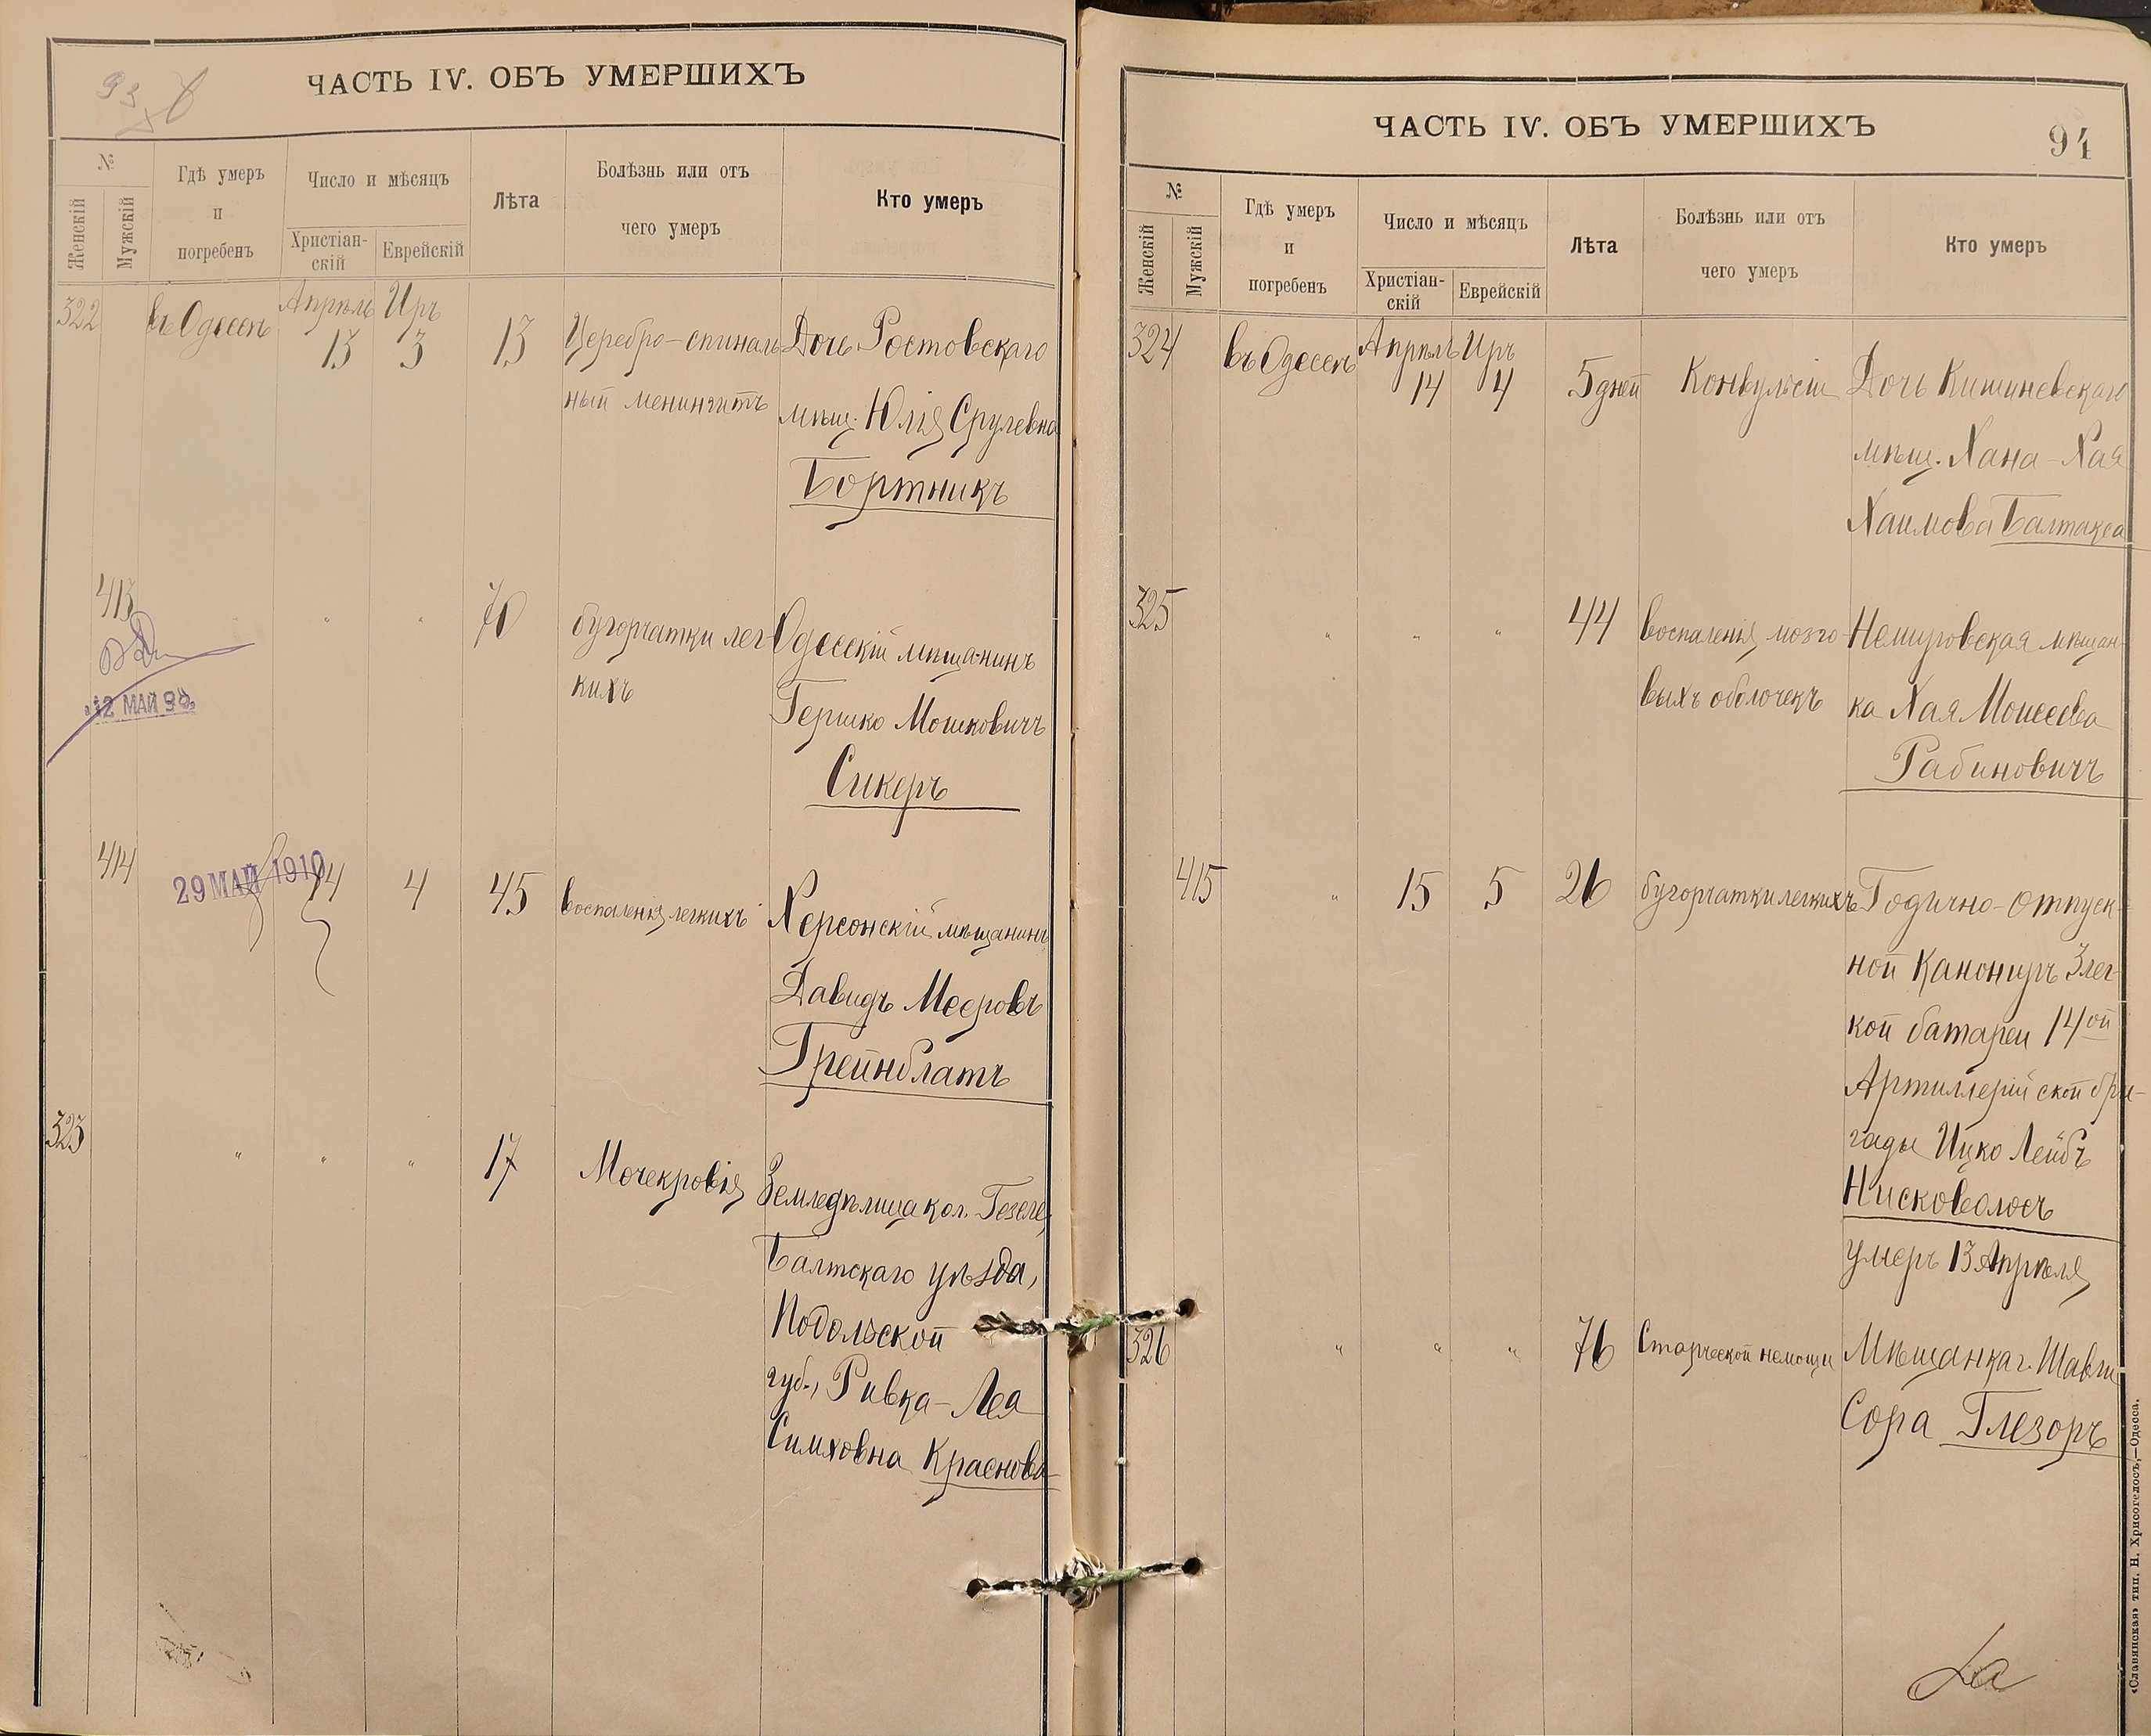 93 об
ЧАСТЬ IV. ОБЪ УМЕРШИХЪ
№
Женскій
Мужскій
Гдѣ умеръ
и
погребенъ
Число и мѣсяцъ
Христіан-
скій
Еврейскій
Лѣта
Болѣзнь или отъ
чего умеръ
Кто умеръ
322 въ Одессѣ Апрѣль 13 Иръ 3 13 Церебро-спиналь Дочь Ростовскаго
ный менингитъ мѣщ. Юлія Срулевна
Бортникъ
413 " " " 70 бугорчатки лег Одесскій мѣщанинъ
кихъ Гершко Мошковичъ
12 МАЙ 98
Сикеръ
414 29 МАЙ 1910 14 4 45 воспаленія легкихъ Херсонскій мѣщанинъ
Давидъ Мееровъ
Грейнблатъ
323 " " " 17 Мочекровія Земледѣлица кол. Гезеле,
Балтскаго уѣзда,
Подольской
губ., Ривка-Лея
Симховна Краснова
ЧАСТЬ IV. ОБЪ УМЕРШИХЪ
94
№
Женскій
Мужскій
Гдѣ умеръ
и
погребенъ
Число и мѣсяцъ
Христіан-
скій
Еврейскій
Лѣта
Болѣзнь или отъ
чего умеръ
Кто умеръ
324 въ Одессѣ Апрѣль 14 Иръ 4 5 дней Конвульсіи Дочь Кишиневскаго
мѣщ. Хана-Хая
Хаимова Балтакса
325 " " " 44 воспаленія мозго Немировская мѣщан-
выхъ оболочекъ ка Хая Моисеева
Рабиновичъ
415 " 15 5 26 бугорчатки легкихъ Годично-отпуск-
ной Канониръ 3 лег-
кой батареи 14ой
Артиллерійской бри-
гады Ицко Лейбъ
Нисковолосъ
умеръ 13 Апрѣля
326 " " " 76 Старческой немощи Мѣщанка г. Шавли
Сора Глезоръ
«Славянская» тип. Н. Хрисогелосъ,—Одесса.